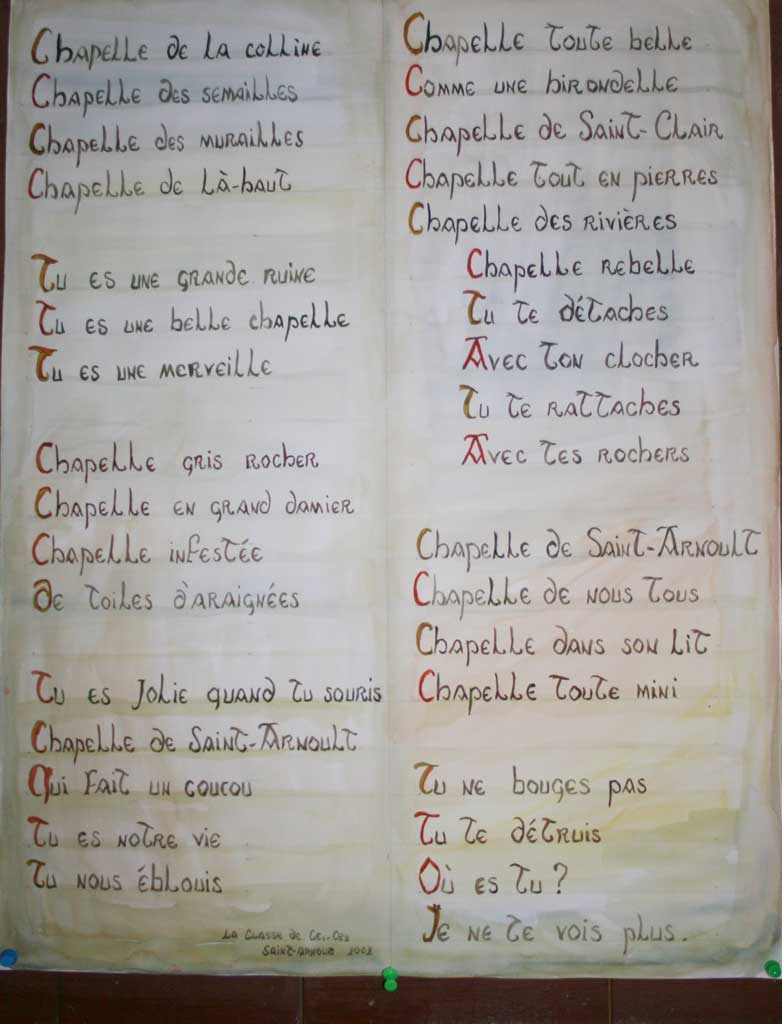 Chapelle de la colline
Chapelle des semailles
Chapelle des murailles
Chapelle de là-haut
Tu es une grande ruine
Tu es une belle chapelle
Tu es une merveille
Chapelle gris rocher
Chapelle en grand damier
Chapelle infestée
De toiles d'araignées
Tu es jolie quand tu souris
Chapelle de Saint-Arnoult
Qui fait un coucou
Tu es notre vie
Tu nous éblouis
La classe de CE1-CE2
Saint-Arnoult 2002
Chapelle toute belle
Comme une hirondelle
Chapelle de Saint-Clair
Chapelle tout en pierres
Chapelle des rivières
Chapelle rebelle
Tu te détaches
Avec ton clocher
Tu te rattaches
Avec tes rochers
Chapelle de Saint-Arnoult
Chapelle de nous tous
Chapelle dans son lit
Chapelle toute mini
Tu ne bouges pas
Tu te détruis
Où es tu ?
Je ne te vois plus.